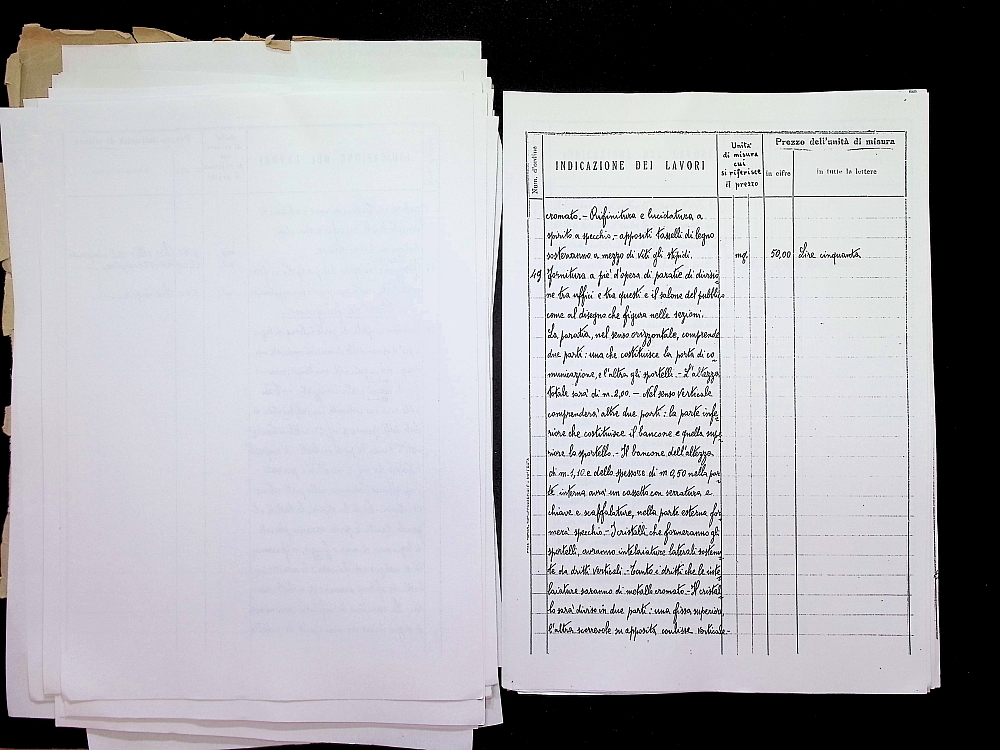 Num. d'ordine
INDICAZIONE DEI LAVORI
Unita'
di misura
cui
si riferisce
il prezzo
Prezzo dell'unità di misura
in cifre
in tutte le lettere
cromato.- Rifinitura e lucidatura a
spirito a specchio,- appositi tasselli di legno
sosterranno a mezzo di viti gli stipidi. mq. 50,00 Lire cinquanta
49 Fornitura a pie' d'opera di paratie di divisio
ne tra uffici e tra questi e il salone del pubblico
come al disegno che figura nelle sezioni.
La paratia, nel senso orizzontale, comprende
due parti: una che costituisce la porta di co
municazione, e l'altra gli sportelli.- L'altezza
totale sara' di m. 2,00. - Nel senso verticale
comprendera' altre due parti: la parte infe
riore che costituisce il bancone e quella supe
riore lo sportello.- Il bancone dell'altezza
di m. 1,10 e dello spessore di m 0,50 nella par
te interna avra' un cassetto con serratura e
chiave e scaffalature, nella parte esterna for
mera' specchio.- I cristalli che formeranno gli
sportelli, avranno intelaiature laterali sostenu
te da dritti verticali.- Tanto i dritti che le inte
laiature saranno di metallo cromato.- Il cristal
lo sara' diviso in due parti: una fissa superiore
l'altra scorrevole su apposite coulisse verticale-